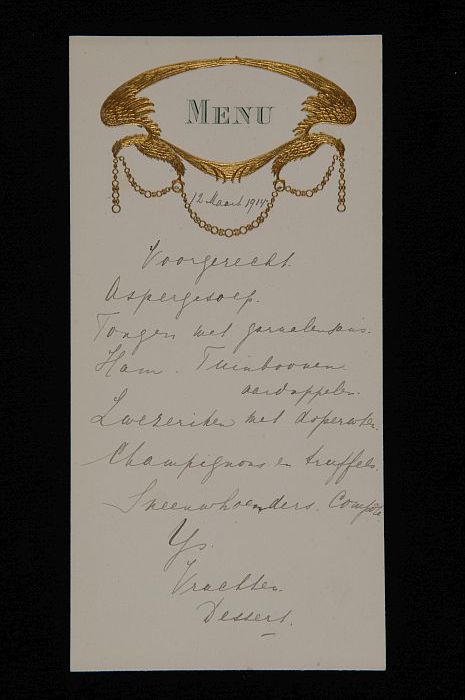 MENU
12 Maart 1914.
Voorgerecht.
Aspergesoep.
Tongen met garnalensaus.
Ham. Tuinboonen.
aardappelen.
Zwezeriken met doperwten.
Champignons en truffels.
Sneeuwhoenders. Compôte
Ys.
Vruchten.
Dessert.